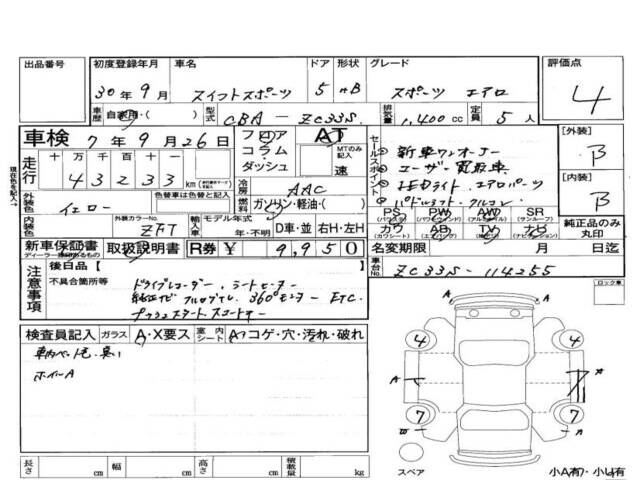 出品番号 初度登録年月 車名 ドア 形状 グレード 評価点
30年9月 スイフトスポーツ 5 HB スポーツ エアロ 4
車歴 自家用・( ) 型式 CBA-ZC33S 排気量 1,400cc 定員 5人
車検 7年9月26日 フロア コラム・ダッシュ AT MTのみ記入 速 セールスポイント
現住所を記入→
走行 十万千百十 43233 km
① 新車ワンオーナー
② ユーザー買取車
③ LEDライト・エアロパーツ
④ パドルシフト・クルコン
外装色 イエロー 色替車は色替と記入 冷房 AAC
燃料 ガソリン・軽油・( )
内装色 外装カラーNo. ZFT 輸入車 モデル年式 年・不明 D車・並 右H・左H
PS (パワステ) PW (パワウィンド) AW (アルミホイル) SR (サンルーフ)
カワ (カワシート) AB (エアバック) TV ナビ 純正品のみ丸印
[外装] B
[内装] B
新車保証書 取扱説明書 R券 ¥ 9,950 名変期限 月 日迄
車台No. ZC33S-114255
注意事項 後日品【 】
不具合箇所等 ドライブレコーダー、シートヒーター
純正ナビ フルセグTV, 360°モニター ETC.
プッシュスタート スマートキー
ロック車
検査員記入 ガラス A・X要ス 室内シート A・コゲ・穴・汚れ・破れ
車内ペット毛・臭い
ホイールA
4 4
A
7 7
W A
スペア
小A有・小U有
長さ cm 幅 cm 高さ cm 積載量 kg